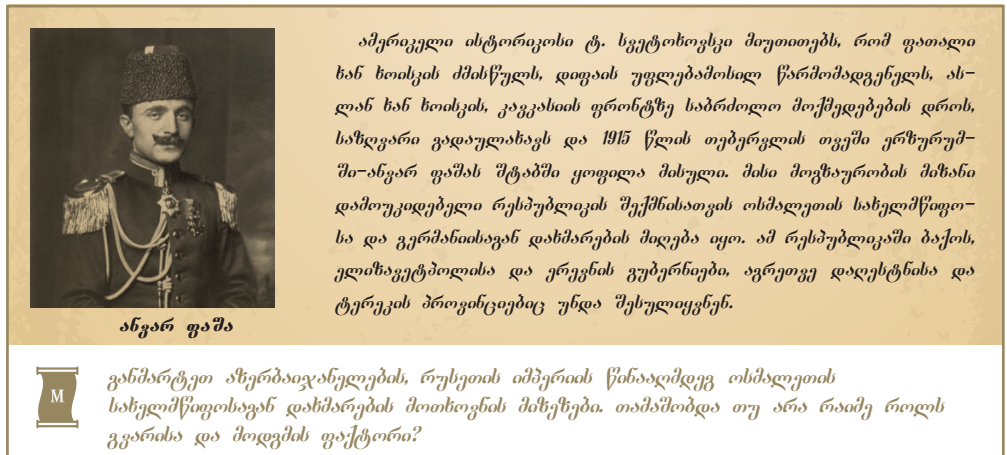 ამერიკელი ისტორიკოსი ტ. სვეტოხოვსკი მიუთითებს, რომ ფათალი
ხან ხოისკის ძმისწულს, დიფაის უფლებამოსილ წარმომადგენელს, ას-
ლან ხან ხოისკის, კავკასიის ფრონტზე საბრძოლო მოქმედებების დროს,
საზღვარი გადაულახავს და 1915 წლის თებერვლის თვეში ერზურუმ-
ში-ანვარ ფაშას შტაბში ყოფილა მისული. მისი მოგზაურობის მიზანი
დამოუკიდებელი რესპუბლიკის შექმნისათვის ოსმალეთის სახელმწიფო-
სა და გერმანიისაგან დახმარების მიღება იყო. ამ რესპუბლიკაში ბაქოს,
ელიზავეტპოლისა და ერევნის გუბერნიები, აგრეთვე დაღესტნისა და
ტერეკის პროვინციებიც უნდა შესულიყვნენ.
ანვარ ფაშა
M
განმარტეთ აზერბაიჯანელების, რუსეთის იმპერიის წინააღმდეგ ოსმალეთის
სახელმწიფოსაგან დახმარების მოთხოვნის მიზეზები. თამაშობდა თუ არა რაიმე როლს
გვარისა და მოდგმის ფაქტორი?